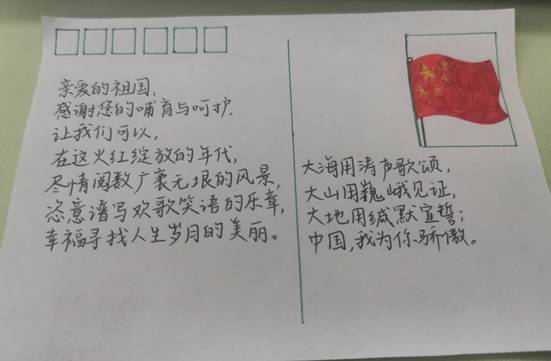 亲爱的祖国,
感谢您的哺育与呵护,
让我们可以,
在这火红绽放的年代,
尽情阅数广袤无垠的风景,
恣意谱写欢歌笑语的乐章,
幸福寻找人生岁月的美丽。
大海用涛声歌颂,
大山用巍峨见证,
大地用缄默宣誓;
中国,我为你骄傲。